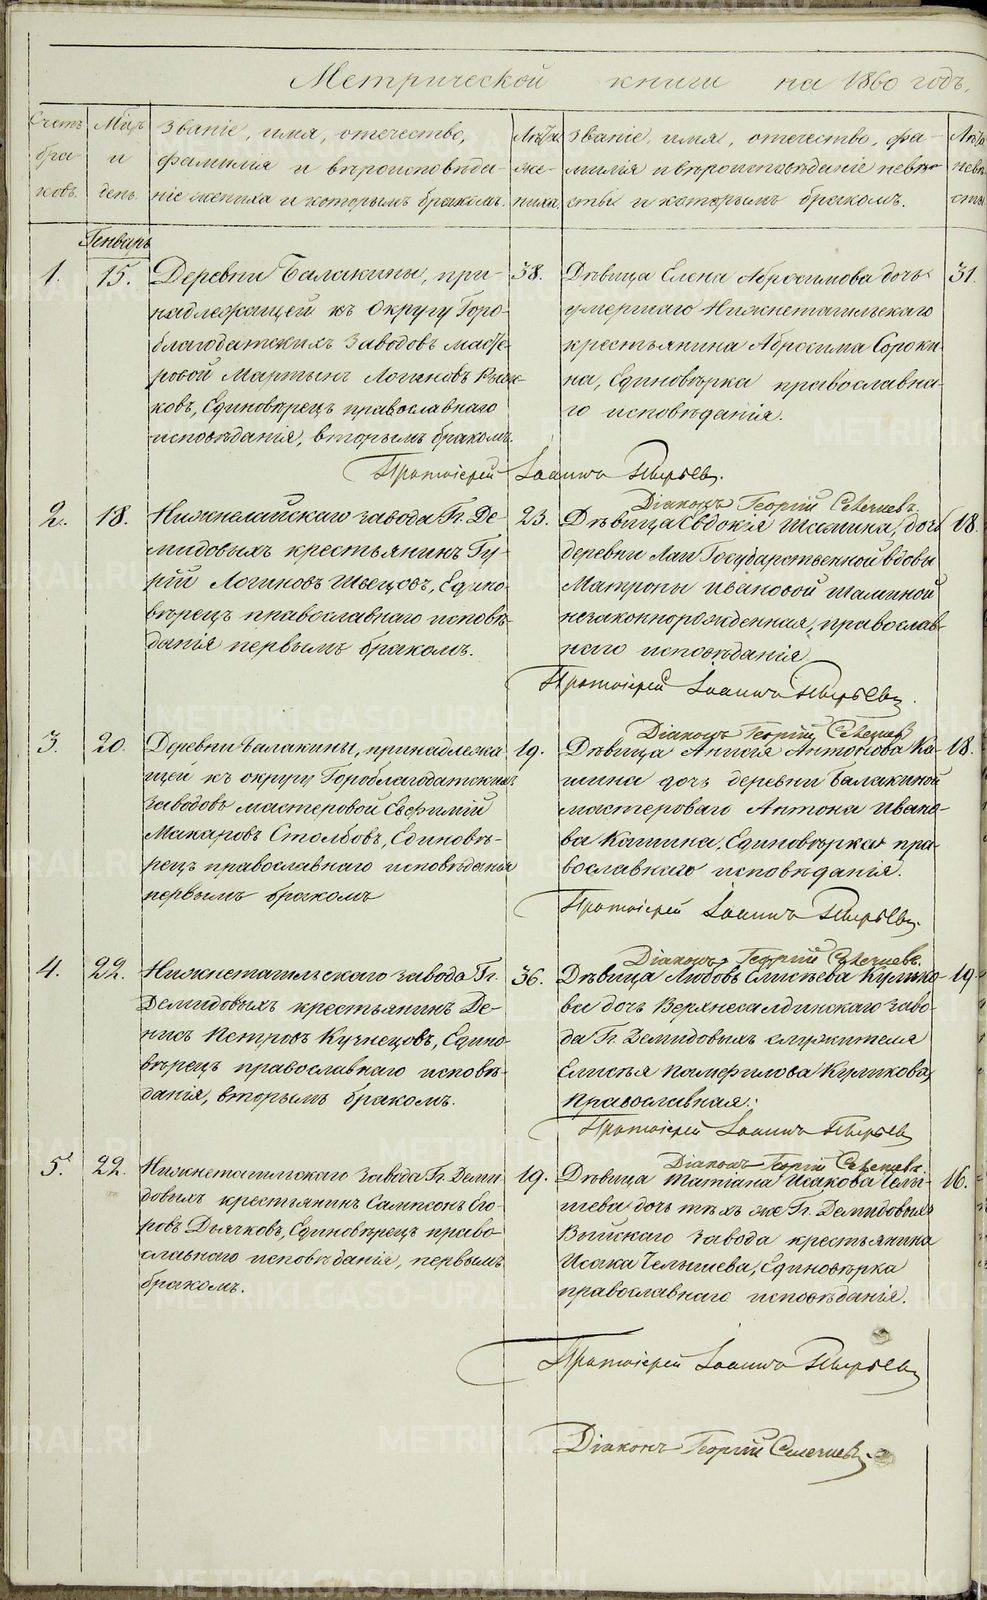 Метрической книги на 1860 годъ,
Счетъ браковъ.
Мц҃ъ и день.
Званіе, имя, отечество,
фамилія и вѣроисповѣда-
ніе жениха и которымъ бракомъ.
Лѣта жениха.
Званіе, имя, отечество, фа-
милія и вѣроисповѣданіе невѣ-
сты и которымъ бракомъ.
Лѣта невѣсты
Генварь
1.
15.
Деревни Балакины, при-
надлежащей къ Округу Горо-
благодатскихъ Заводовъ масте-
ровой Мартынъ Логиновъ
ковъ, Единовѣрецъ православнаго
исповѣданія, вторымъ бракомъ.
38.
Дѣвица Елена Абросимова дочь
умершаго Нижнетагильскаго
крестьянина Абросима Сороки-
на, Единовѣрка православна-
го исповѣданія.
31.
Протоіерей Іоаннъ Пырьевъ.
Діаконъ Георгій
2.
18.
Нижнелайскаго завода Гг. Де-
мидовыхъ крестьянинъ Гу-
рій Логиновъ Швецовъ, Едино-
вѣрецъ православнаго исповѣ-
данія первымъ бракомъ.
23.
Дѣвица Евдокія Шамина, дочь
деревни Лаи Государственной вдовы
Матроны Ивановой Шаминой
незаконнорожденная, православ-
наго исповѣданія
18.
Протоіерей Іоаннъ Пырьевъ.
Діаконъ Георгій
3.
20.
Деревни Балакины, принадлежа
щей къ округу Гороблагодатскихъ
заводовъ мастеровой Евфимій
Макаровъ Столбовъ, Единовѣ-
рецъ православнаго исповѣданія
первымъ бракомъ
19.
Дѣвица Анисія Антонова Ка-
шина дочь деревни Балакиной
мастероваго Антона Ивано-
ва Кашина, Единовѣрка пра-
вославнаго исповѣданія.
18.
Протоіерей Іоаннъ Пырьевъ.
Діаконъ Георгій
4.
22.
Нижнетагильскаго завода Гг.
Демидовыхъ крестьянинъ Де-
нисъ Петровъ Кузнецовъ, Едино-
вѣрецъ православнаго исповѣ-
данія, вторымъ бракомъ.
36.
Дѣвица Любовь Елисѣева Кулико-
ва дочь Верхнесалдинскаго заво-
да Гг. Демидовыхъ служителя
Елисѣя Памфилова Куликова,
Православная.
19
Протоіерей Іоаннъ Пырьевъ
Діаконъ Георгій
5.
22.
Нижнетагильскаго завода Гг. Деми-
довыхъ крестьянинъ Сампсонъ Его-
ровъ Дьячковъ, Единовѣрецъ право-
славнаго исповѣданія, первымъ
бракомъ.
19.
Дѣвица Татіана Исакова Челы-
шева дочь тѣхъ же Гг. Демидовыхъ
Выйскаго завода крестьянина
Исака Челышева, Единовѣрка
православнаго исповѣданія.
16.
Протоіерей Іоаннъ Пырьевъ
Діаконъ Георгій
METRIKI.GASO-URAL.RU